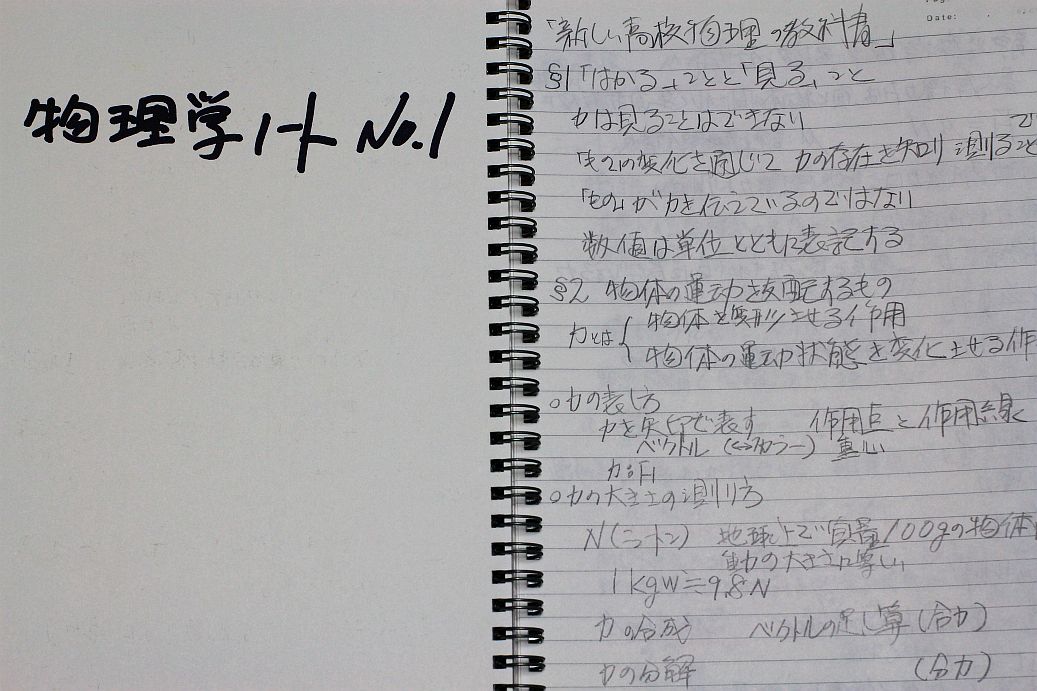 物理学ノート No.1
Date:
「新しい高校物理の教科書」
§1「はかる」ことと「見る」こと
力は見ることはできない
「もの」の変化を通じて 力の存在を知り 測ること
で
「もの」が力を伝えているのではない
数値は単位とともに表記する
§2 物体の運動を支配するもの
力とは { 物体を変形させる作用
物体の運動状態を変化させる作
○力の表し方
力を矢印で表す 作用点と作用線
ベクトル (⇔スカラー) 重心
○力の大きさの測り方
N(ニュートン) 地球上で質量100gの物体
重力の大きさに等しい
1kgw≒9.8N
力の合成 ベクトルの足し算(合力)
力の分解 (分力)